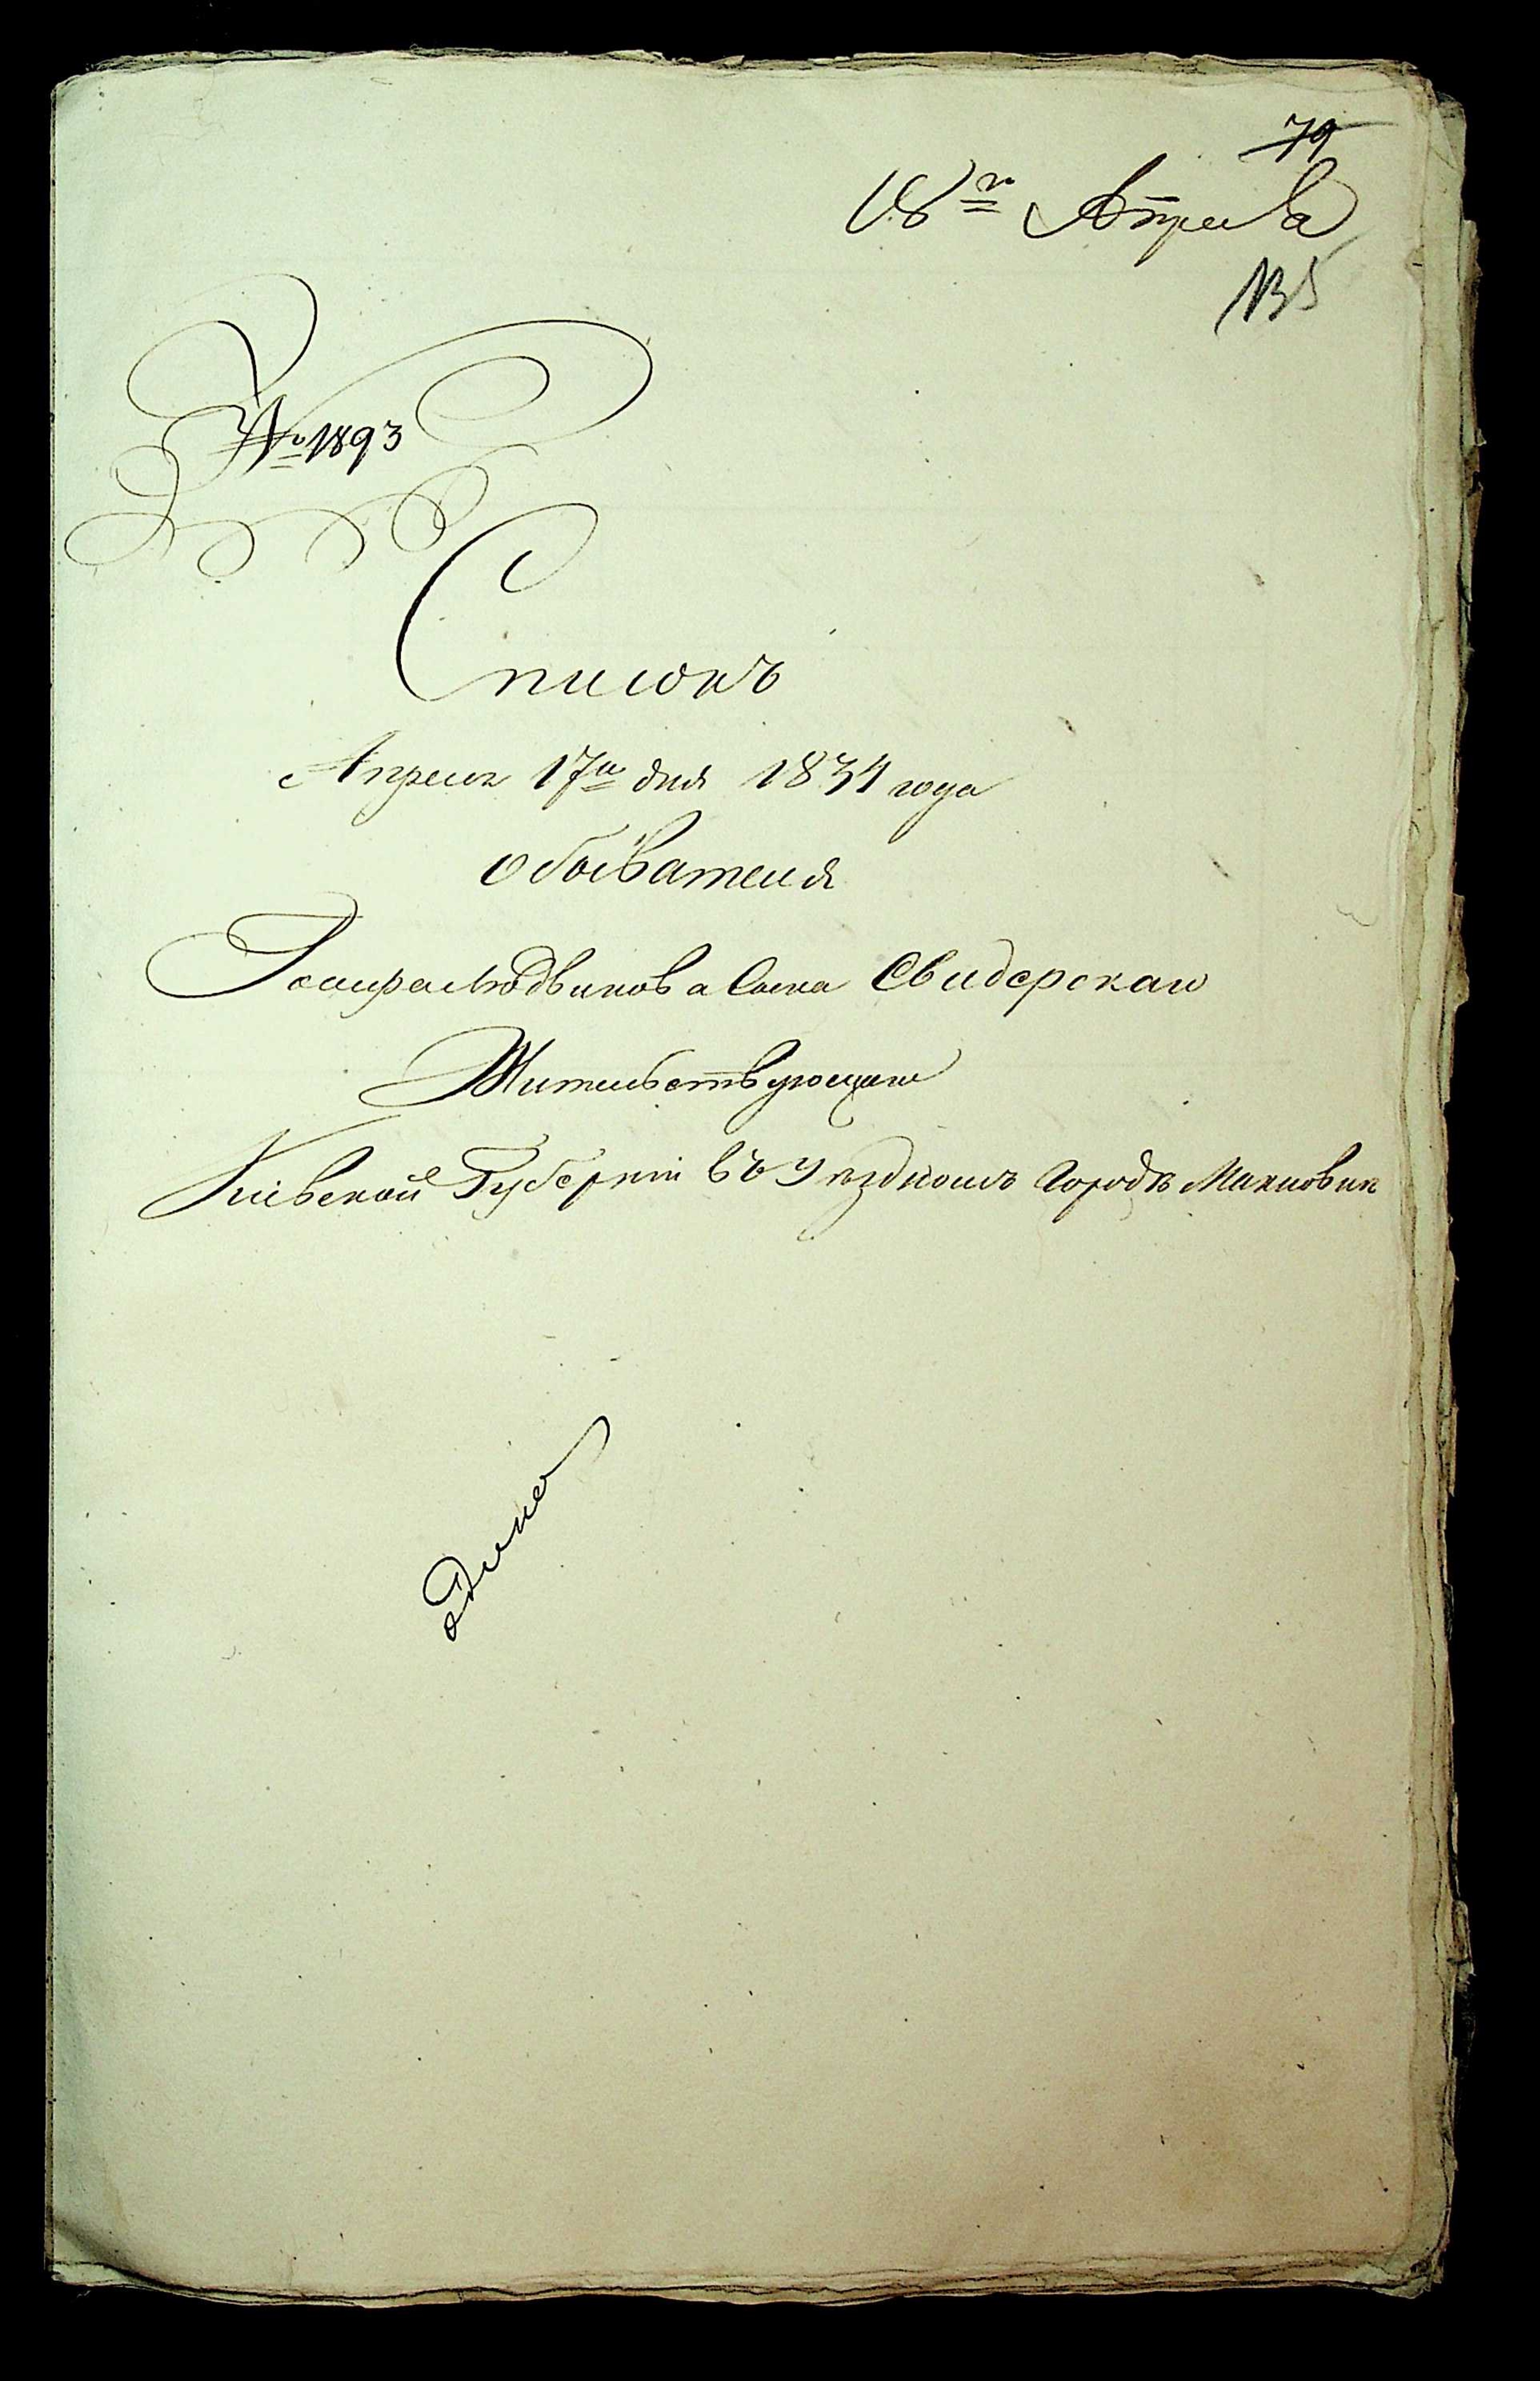 79
18го Апреля
135
№ 1893
Списокъ
Апреля 17го дня 1834 года
обывателя
Людвикова Сына Свидерскаго
Жительствующаго
Кіевской Губерніи въ Уѣздномъ Городѣ Махновкѣ